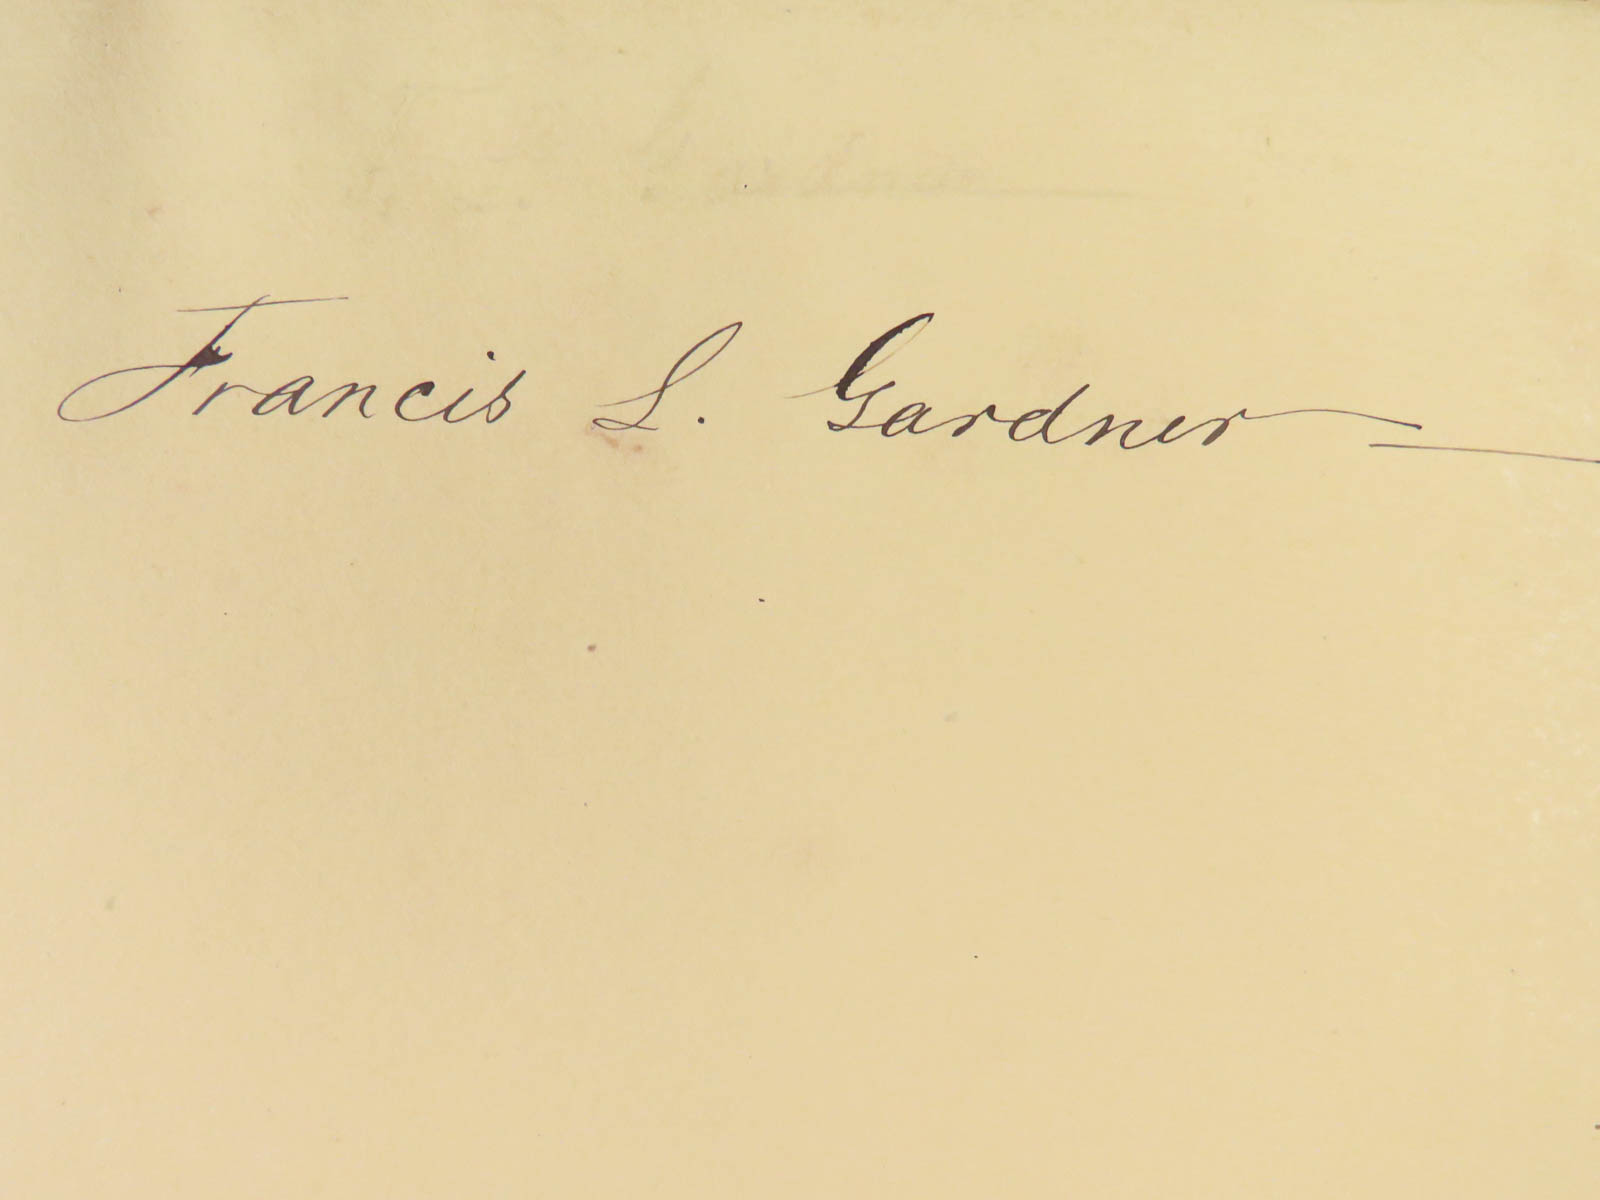 Francis L. Gardner